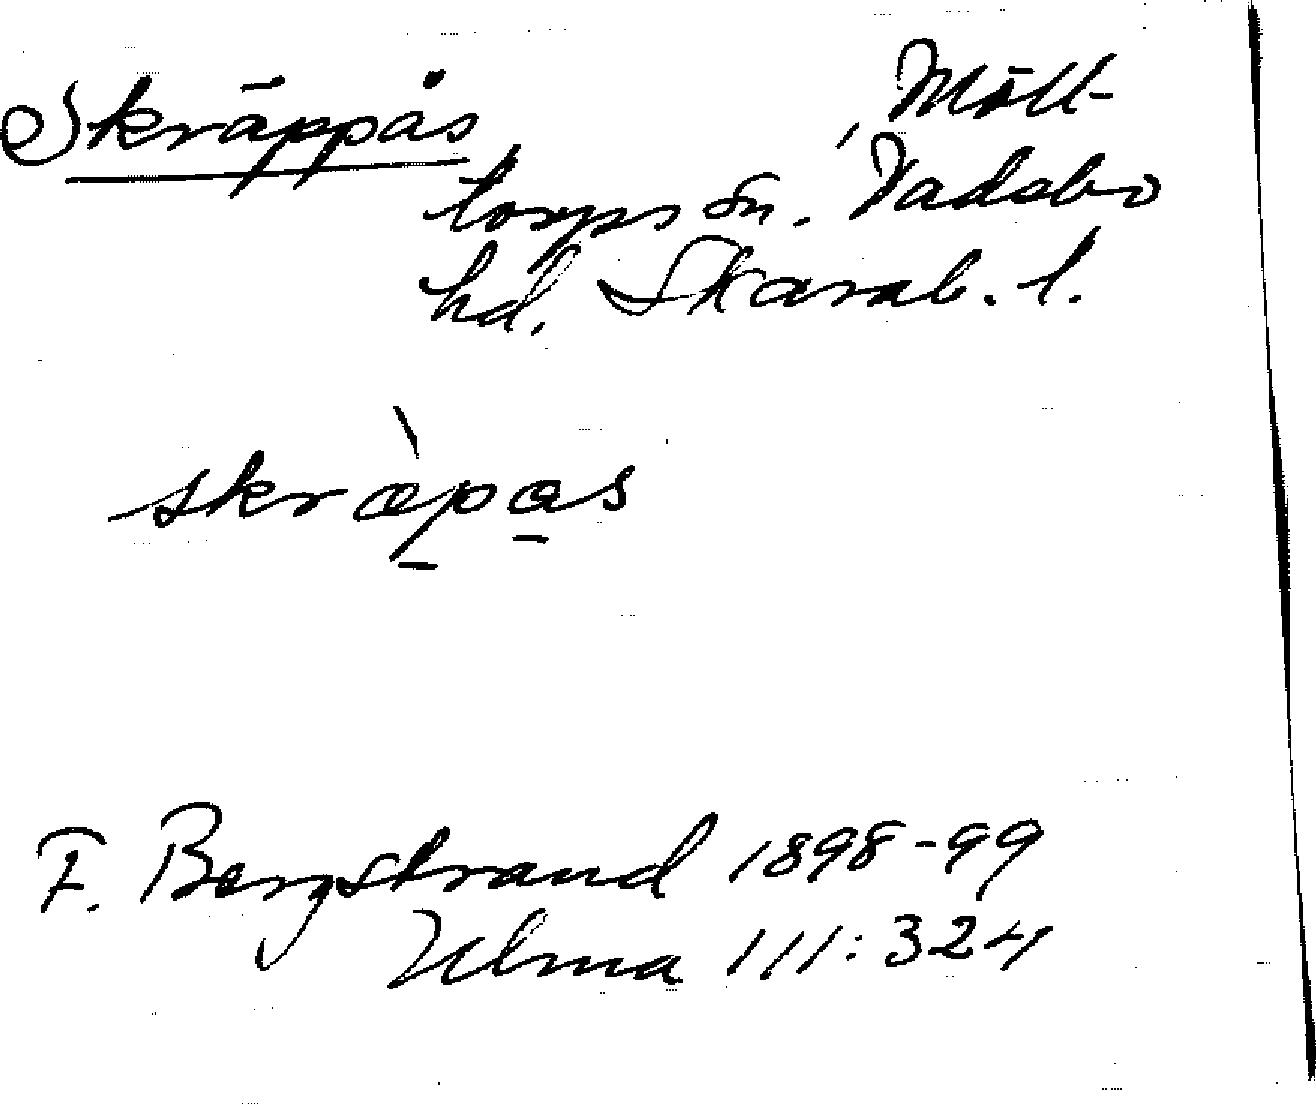 Skräppås, Mölltorps sn. Vadsbo
hd. Skarab. l.
skræ̀p̠a̠s
F. Bergstrand 1898-99
Ulma 111:324